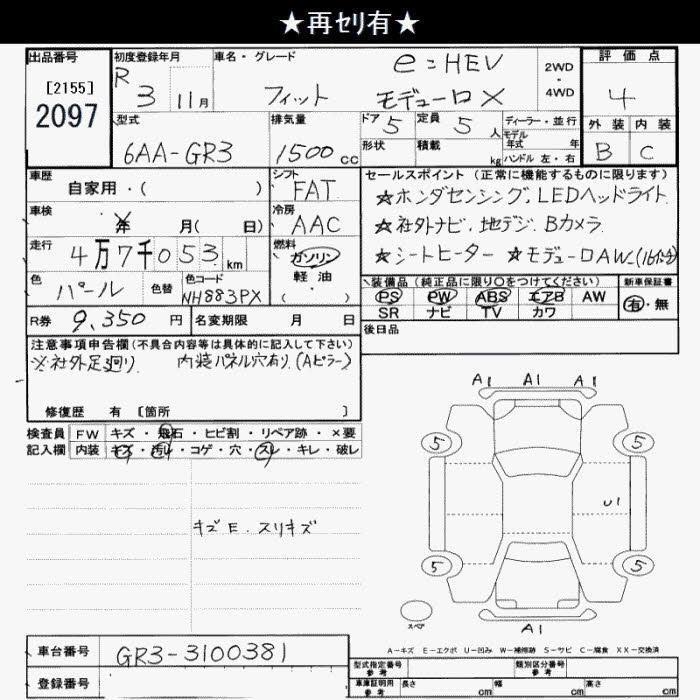 ★再ｾﾘ有★
出品番号 [2155] 2097
初度登録年月 R 3 11月
車名・グレード フィット e:HEV モデューロX
2WD・4WD
評価点 4
外装 B 内装 C
型式 6AA-GR3
排気量 1500cc
ドア 5 定員 5人
形状 積載 kg
ディーラー・並行
モデル年式 年
ハンドル 左・右
車歴 自家用・( )
シフト FAT
車検 年 月( 日)
冷房 AAC
走行 4万7千053km
燃料 ガソリン 軽油・( )
色 パール 色替 色コード NH883PX
R券 9,350円 名変期限 月 日
セールスポイント(正常に機能するものに限ります)
☆ホンダセンシング, LEDヘッドライト
☆社外ナビ, 地デジ, Bカメラ
☆シートヒーター ☆モデューロAW(16インチ)
装備品(純正品に限り○をつけてください)
PS PW ABS エアB AW
SR ナビ TV カワ
新車保証書 有・無
後日品
注意事項申告欄(不具合内容等は具体的に記入して下さい)
※社外足廻り 内装パネル穴有り(Aピラー)
修復歴 有 [箇所 ]
検査員記入欄
FW キズ・飛石・ヒビ割・リペア跡・×要
内装 キズ・汚レ・コゲ・穴・スレ・キレ・破レ
キズE, スリキズ
A1 A1 A1
5 5
U1
5 5
スペア
A1
A-キズ E-エクボ U-凹み W-補修跡 S-サビ C-腐食 XX-交換済
車台番号 GR3-3100381
登録番号
型式指定番号参考 類別区分番号参考
車庫証明用参考 長さ cm 幅 cm 高さ cm